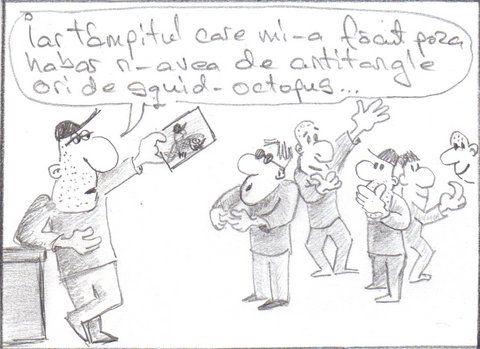 Iar tâmpitul care mi-a făcut poza
habar n-avea de antitangle
ori de squid-octopus...